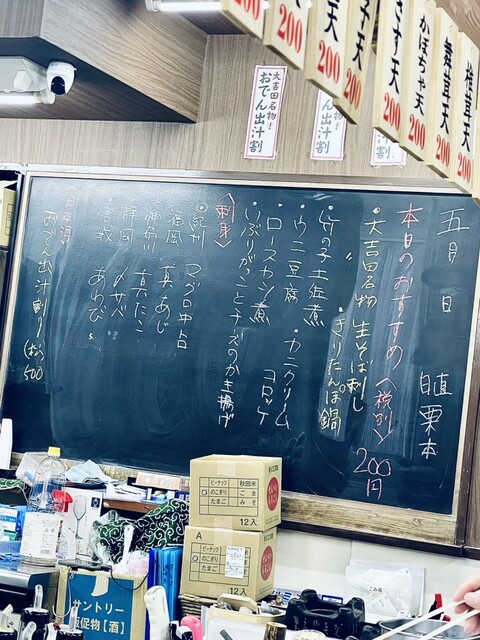 椎茸天
200
舞茸天
200
かぼちゃ天
200
さす天
200
子天
200
天
200
200
200
大吉田名物!
おでん出汁割
五月 日
植栗本
本日のおすすめ〈税別〉200円
・大吉田名物 生そば刺し
・きりたんぽ鍋
・竹の子土佐煮
・ウニ豆腐
・カニクリームコロッケ
・ロースカツ煮
・いぶりがっことチーズのかき揚げ
〈刺身〉
・紀州 マグロ中白
・福岡 真あじ
・神奈川 真だこ
・静岡 〆サバ
・宮城 あわび
〈日本酒〉
おでん出汁割り (松) 500
秋田米
ピーナッツ
ごま
のこぎり
みそ
たまご
12入
A
ピーナッツ
のこぎり
たまご
12入
サントリー
販促物【酒】